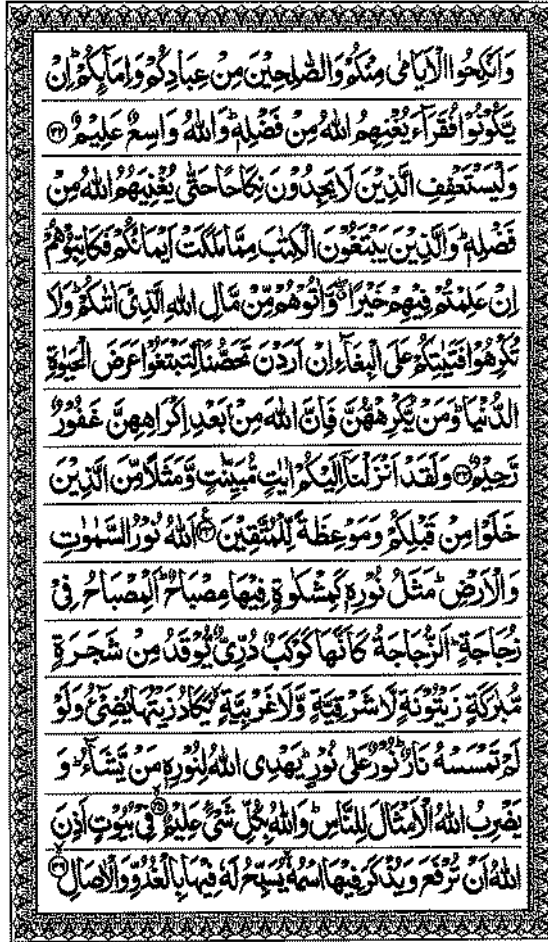 وَاَنْكِحُوا الْاَيَامٰى مِنْكُمْ وَالصّٰلِحِيْنَ مِنْ عِبَادِكُمْ وَاِمَآئِكُمْ ؕ اِنْ
يَّكُوْنُوْا فُقَرَآءَ يُغْنِهِمُ اللّٰهُ مِنْ فَضْلِهٖ ؕ وَاللّٰهُ وَاسِعٌ عَلِيْمٌ ﴿۳۲﴾
وَلْيَسْتَعْفِفِ الَّذِيْنَ لَا يَجِدُوْنَ نِكَاحًا حَتّٰى يُغْنِيَهُمُ اللّٰهُ مِنْ
فَضْلِهٖ ؕ وَالَّذِيْنَ يَبْتَغُوْنَ الْكِتٰبَ مِمَّا مَلَكَتْ اَيْمَانُكُمْ فَكَاتِبُوْهُمْ
اِنْ عَلِمْتُمْ فِيْهِمْ خَيْرًا ۖ وَّاٰتُوْهُمْ مِّنْ مَّالِ اللّٰهِ الَّذِيْۤ اٰتٰىكُمْ ؕ وَلَا
تُكْرِهُوْا فَتَيٰتِكُمْ عَلَى الْبِغَآءِ اِنْ اَرَدْنَ تَحَصُّنًا لِّتَبْتَغُوْا عَرَضَ الْحَيٰوةِ
الدُّنْيَا ؕ وَمَنْ يُّكْرِهْهُّنَّ فَاِنَّ اللّٰهَ مِنْۢ بَعْدِ اِكْرَاهِهِنَّ غَفُوْرٌ
رَّحِيْمٌ ﴿۳۳﴾ وَلَقَدْ اَنْزَلْنَاۤ اِلَيْكُمْ اٰيٰتٍ مُّبَيِّنٰتٍ وَّمَثَلًا مِّنَ الَّذِيْنَ
خَلَوْا مِنْ قَبْلِكُمْ وَمَوْعِظَةً لِّلْمُتَّقِيْنَ ﴿۳۴﴾ اَللّٰهُ نُوْرُ السَّمٰوٰتِ
وَالْاَرْضِ ؕ مَثَلُ نُوْرِهٖ كَمِشْكٰوةٍ فِيْهَا مِصْبَاحٌ ؕ اَلْمِصْبَاحُ فِيْ
زُجَاجَةٍ ؕ اَلزُّجَاجَةُ كَاَنَّهَا كَوْكَبٌ دُرِّيٌّ يُّوْقَدُ مِنْ شَجَرَةٍ
مُّبٰرَكَةٍ زَيْتُوْنَةٍ لَّا شَرْقِيَّةٍ وَّلَا غَرْبِيَّةٍ ۙ يَّكَادُ زَيْتُهَا يُضِيْٓءُ وَلَوْ
لَمْ تَمْسَسْهُ نَارٌ ؕ نُوْرٌ عَلٰى نُوْرٍ ؕ يَهْدِى اللّٰهُ لِنُوْرِهٖ مَنْ يَّشَآءُ ؕ وَ
يَضْرِبُ اللّٰهُ الْاَمْثَالَ لِلنَّاسِ ؕ وَاللّٰهُ بِكُلِّ شَيْءٍ عَلِيْمٌ ﴿۳۵﴾ فِيْ بُيُوْتٍ اَذِنَ
اللّٰهُ اَنْ تُرْفَعَ وَيُذْكَرَ فِيْهَا اسْمُهٗ ۙ يُسَبِّحُ لَهٗ فِيْهَا بِالْغُدُوِّ وَالْاٰصَالِ ﴿۳۶﴾